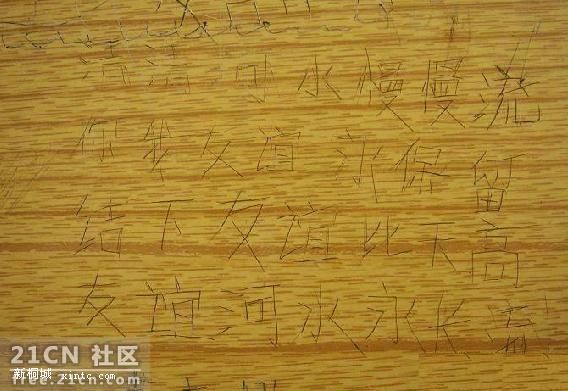 清清河水慢慢流
你我友谊永保留
结下友谊比天高
友谊河水永长流
21CN 社区
free.21cn.com
新桐城 xinic.com